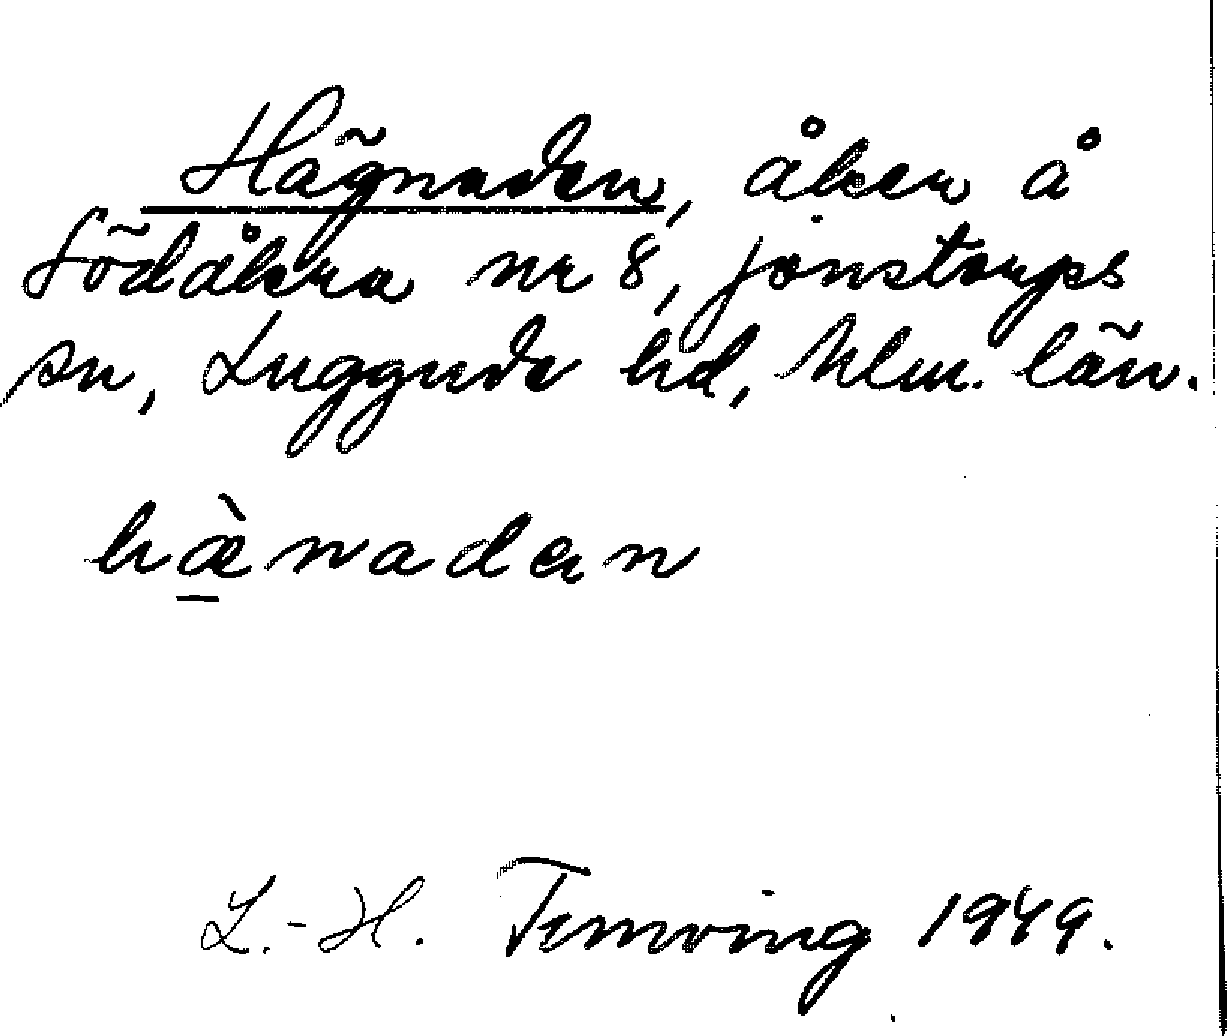 Hägnaden, åker å
Södåkra nr 8, Jonstorps
sn, Luggude hd, Mlm. län.
hæ̀nadən
L.-H. 1949.